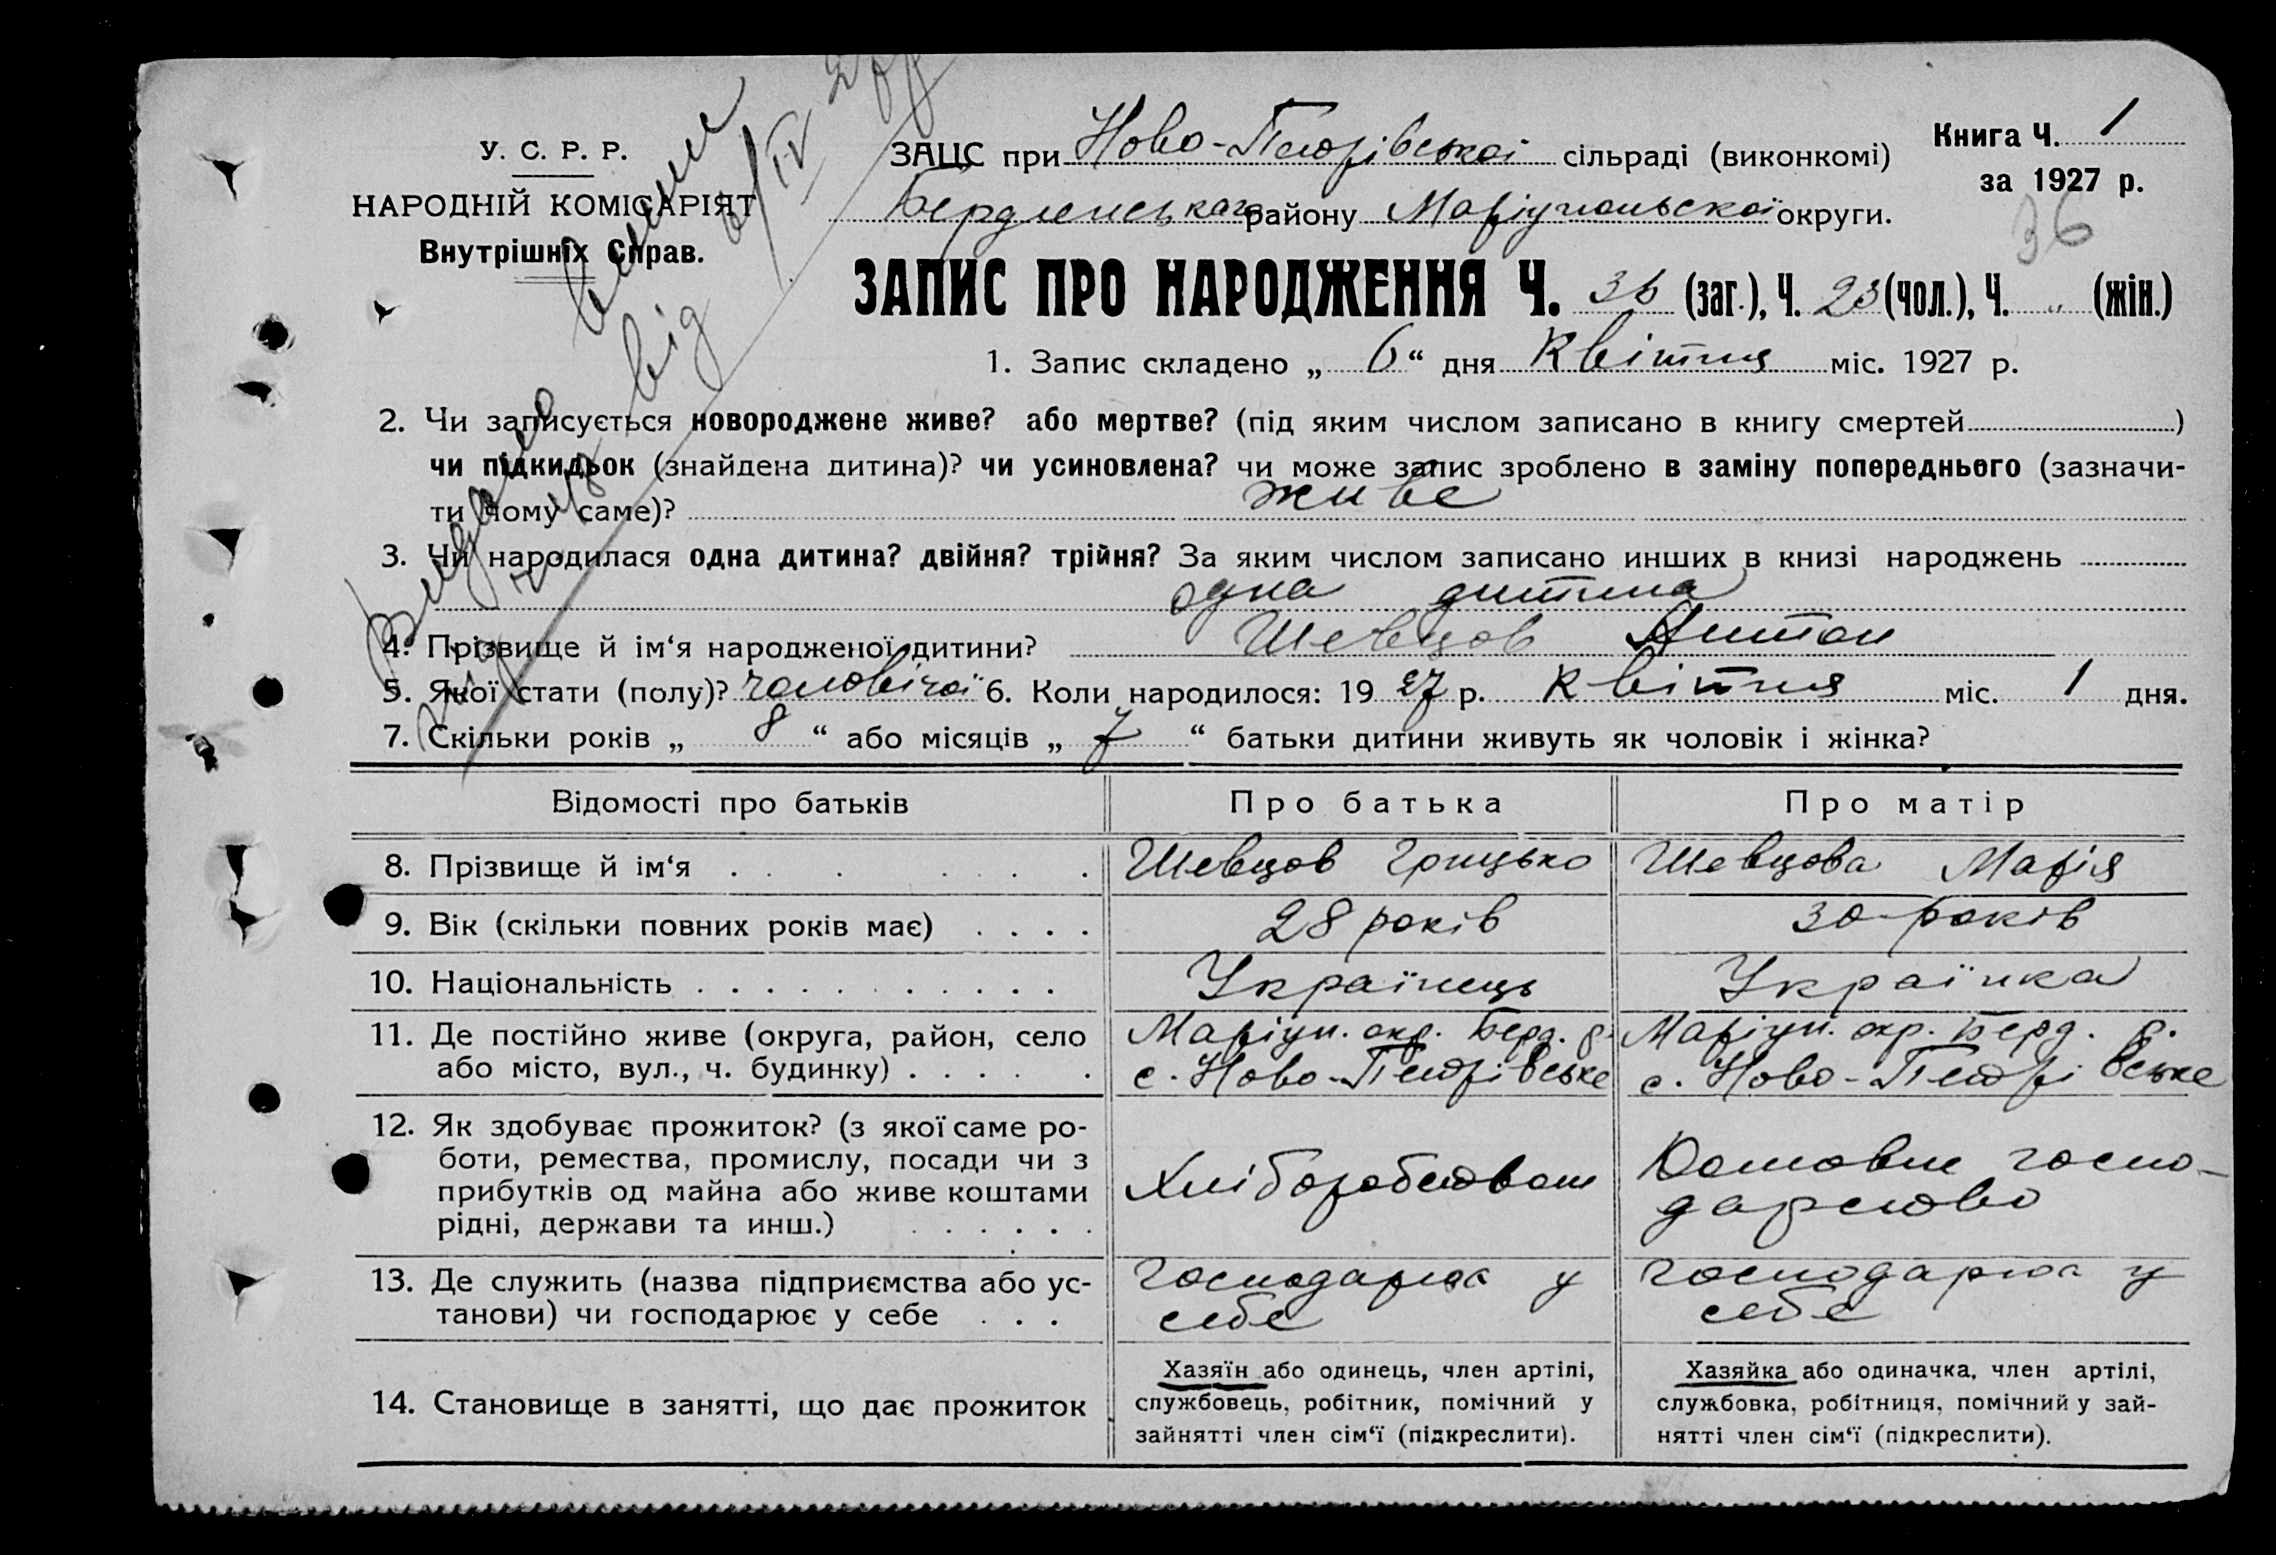 У. С. Р. Р.
НАРОДНІЙ КОМІСАРІЯТ
Внутрішніх Справ.
Видано виписку
від 6/IV 27 р
ЗАЦС при Ново-Петрівської сільраді (виконкомі)
Бердянського району Маріупольської округи.
Книга Ч. 1
за 1927 р.
36
ЗАПИС ПРО НАРОДЖЕННЯ Ч. 36 (заг.), Ч. 23 (чол.), Ч. „ (жін.)
1. Запис складено „ 6 “ дня Квітня міс. 1927 р.
2. Чи записується новороджене живе? або мертве? (під яким числом записано в книгу смертей )
чи підкидьок (знайдена дитина)? чи усиновлена? чи може запис зроблено в заміну попереднього (зазначи-
ти чому саме)? живе
3. Чи народилася одна дитина? двійня? трійня? За яким числом записано инших в книзі народжень
одна дитина
4. Прізвище й ім‘я народженої дитини? Шевцов Антон
5. Якої стати (полу)? чоловічої 6. Коли народилося: 19 27 р. Квітня міс. 1 дня.
7. Скільки років „ 8 “ або місяців „ 7 “ батьки дитини живуть як чоловік і жінка?
Відомості про батьків Про батька Про матір
8. Прізвище й ім‘я Шевцов Грицько Шевцова Марія
9. Вік (скільки повних років має) 28 років 30 років
10. Національність Українець Українка
11. Де постійно живе (округа, район, село Маріуп. окр. Берд. р. Маріуп. окр. Берд. р.
або місто, вул., ч. будинку) с. Ново-Петрівське с. Ново-Петрівське
12. Як здобуває прожиток? (з якої саме ро-
боти, ремества, промислу, посади чи з
прибутків од майна або живе коштами
рідні, держави та инш.)
Хліборобством
Домовне госпо-
дарство
13. Де служить (назва підприємства або ус- господарює у господарює у
танови) чи господарює у себе себе себе
14. Становище в занятті, що дає прожиток
Хазяїн або одинець, член артілі,
службовець, робітник, помічний у
зайнятті член сім‘ї (підкреслити).
Хазяйка або одиначка, член артілі,
службовка, робітниця, помічний у зай-
нятті член сім‘ї (підкреслити).